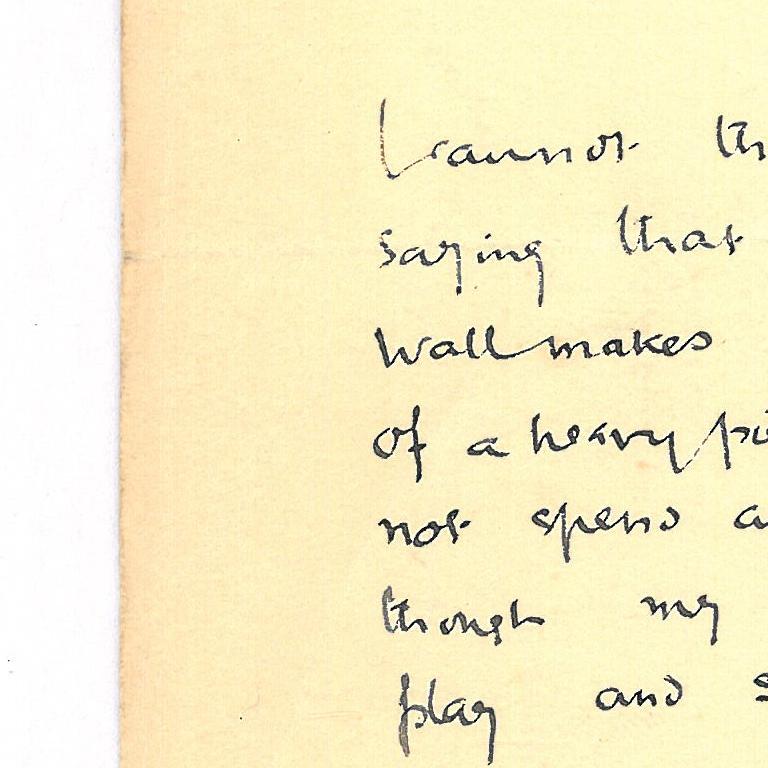 I cannot th
saying that
Wall makes
of a heavy pi
not spend a
though my
play and s